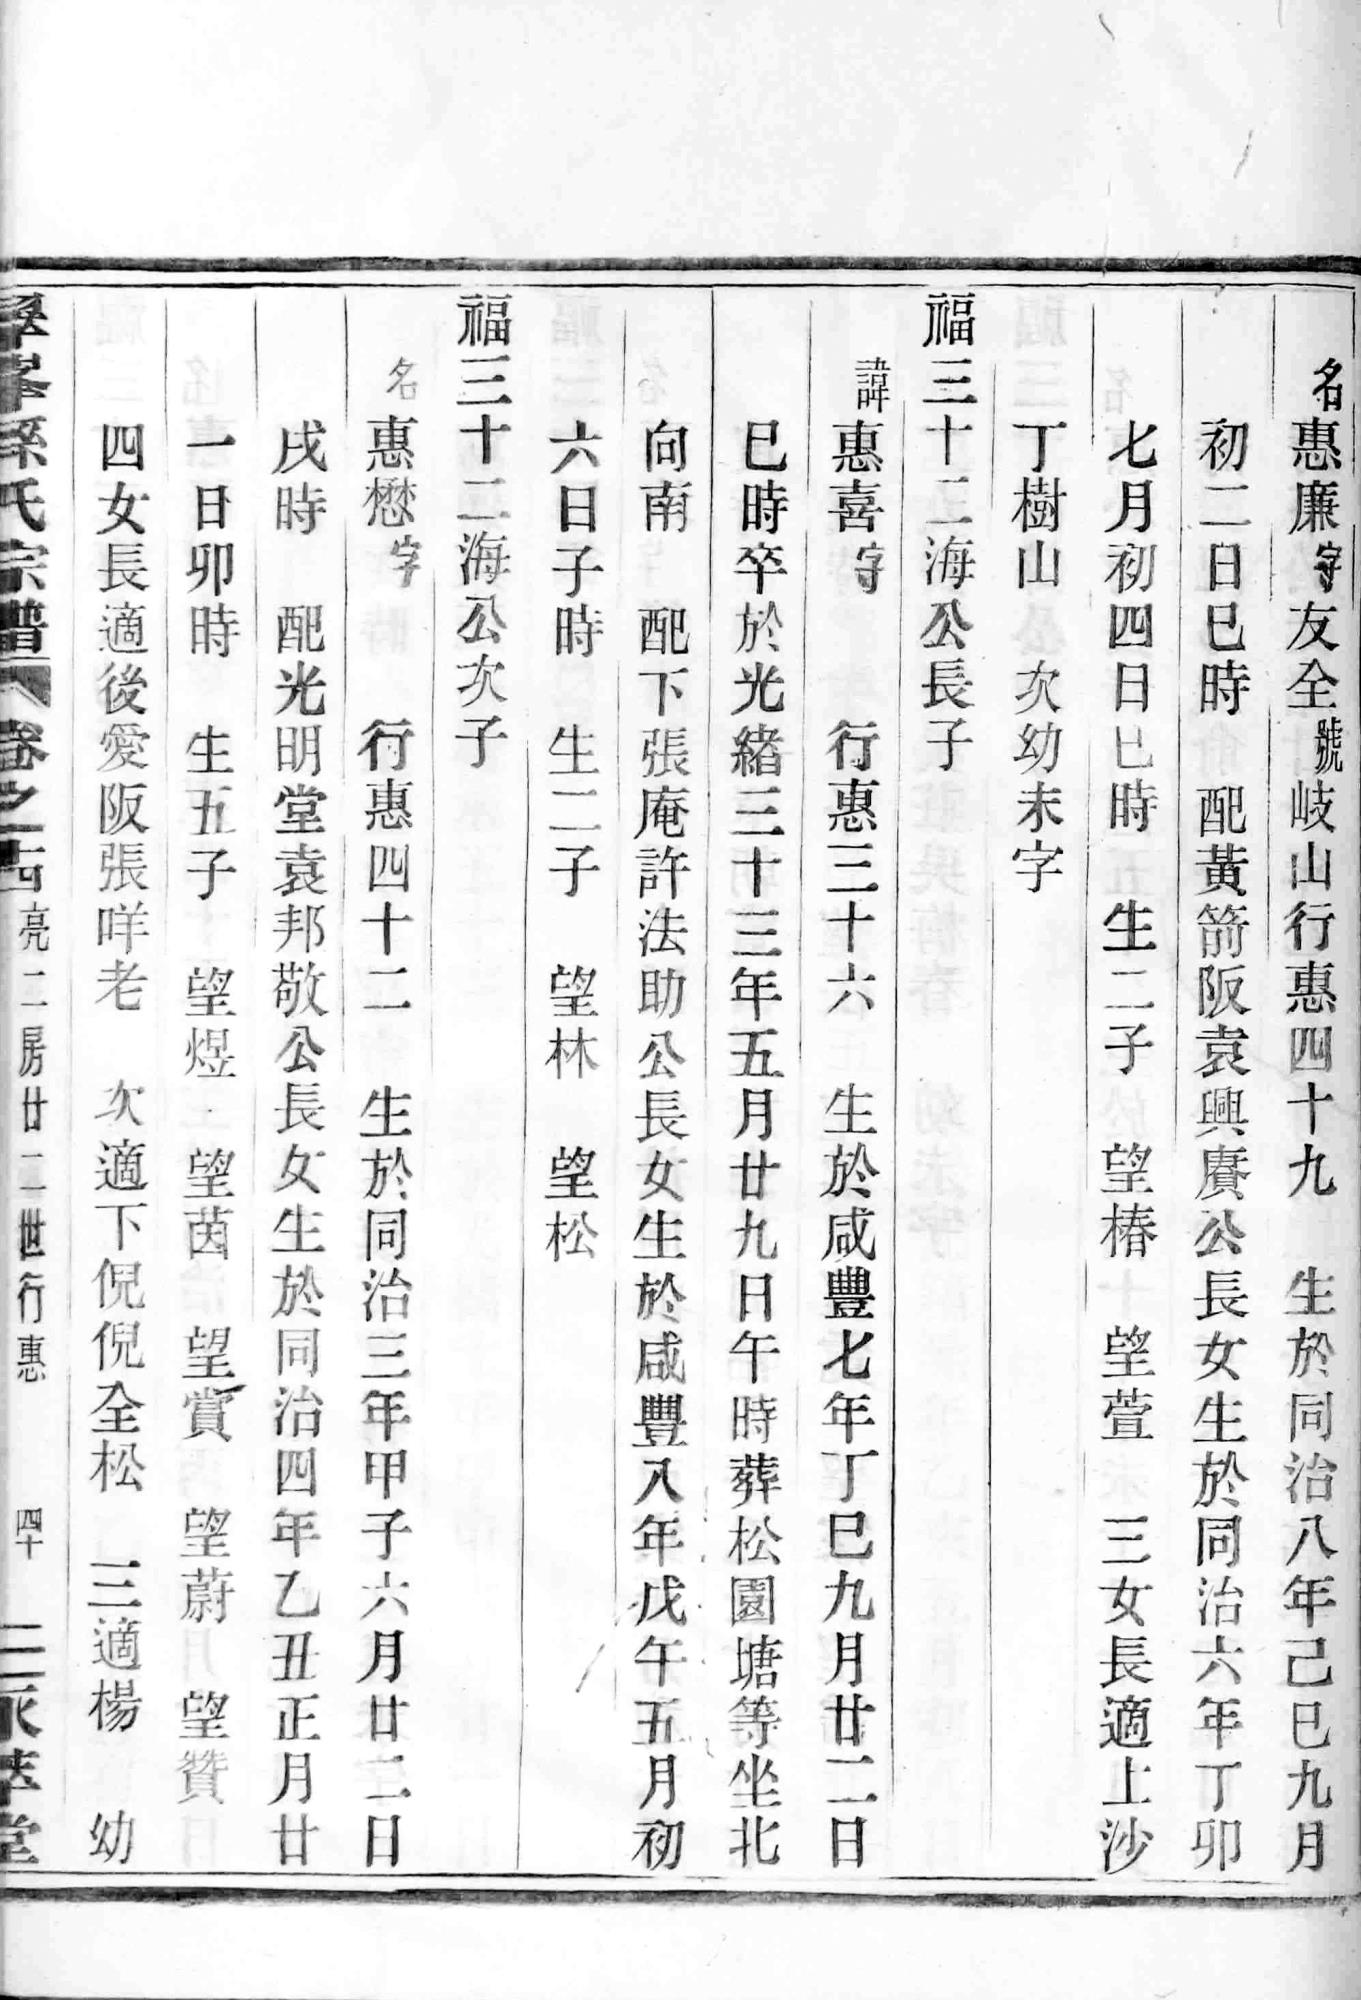 名惠廉字友全號岐山行惠四十九　生於同治八年己巳九月
初二日巳時　配黃箭阪袁興賡公長女生於同治六年丁卯
七月初四日巳時　生二子　望椿　望萱　三女長適上沙
丁樹山　次幼未字
福三十二海公長子
諱惠喜字　行惠三十六　生於咸豐七年丁巳九月廿二日
巳時卒於光緒三十三年五月廿九日午時葬松園塘等坐北
向南　配下張庵許法助公長女生於咸豐八年戊午五月初
六日子時　生二子　望林　望松
福三十二海公次子
名惠懋字　行惠四十二　生於同治三年甲子六月廿二日
戌時　配光明堂袁邦敬公長女生於同治四年乙丑正月廿
一日卯時　生五子　望煜　望茵　望賞　望蔚　望贊
四女長適後愛阪張咩老　次適下倪倪全松　三適楊　幼
孫氏宗譜 卷之十四 亮二房廿二世行惠 四十 二永萃堂